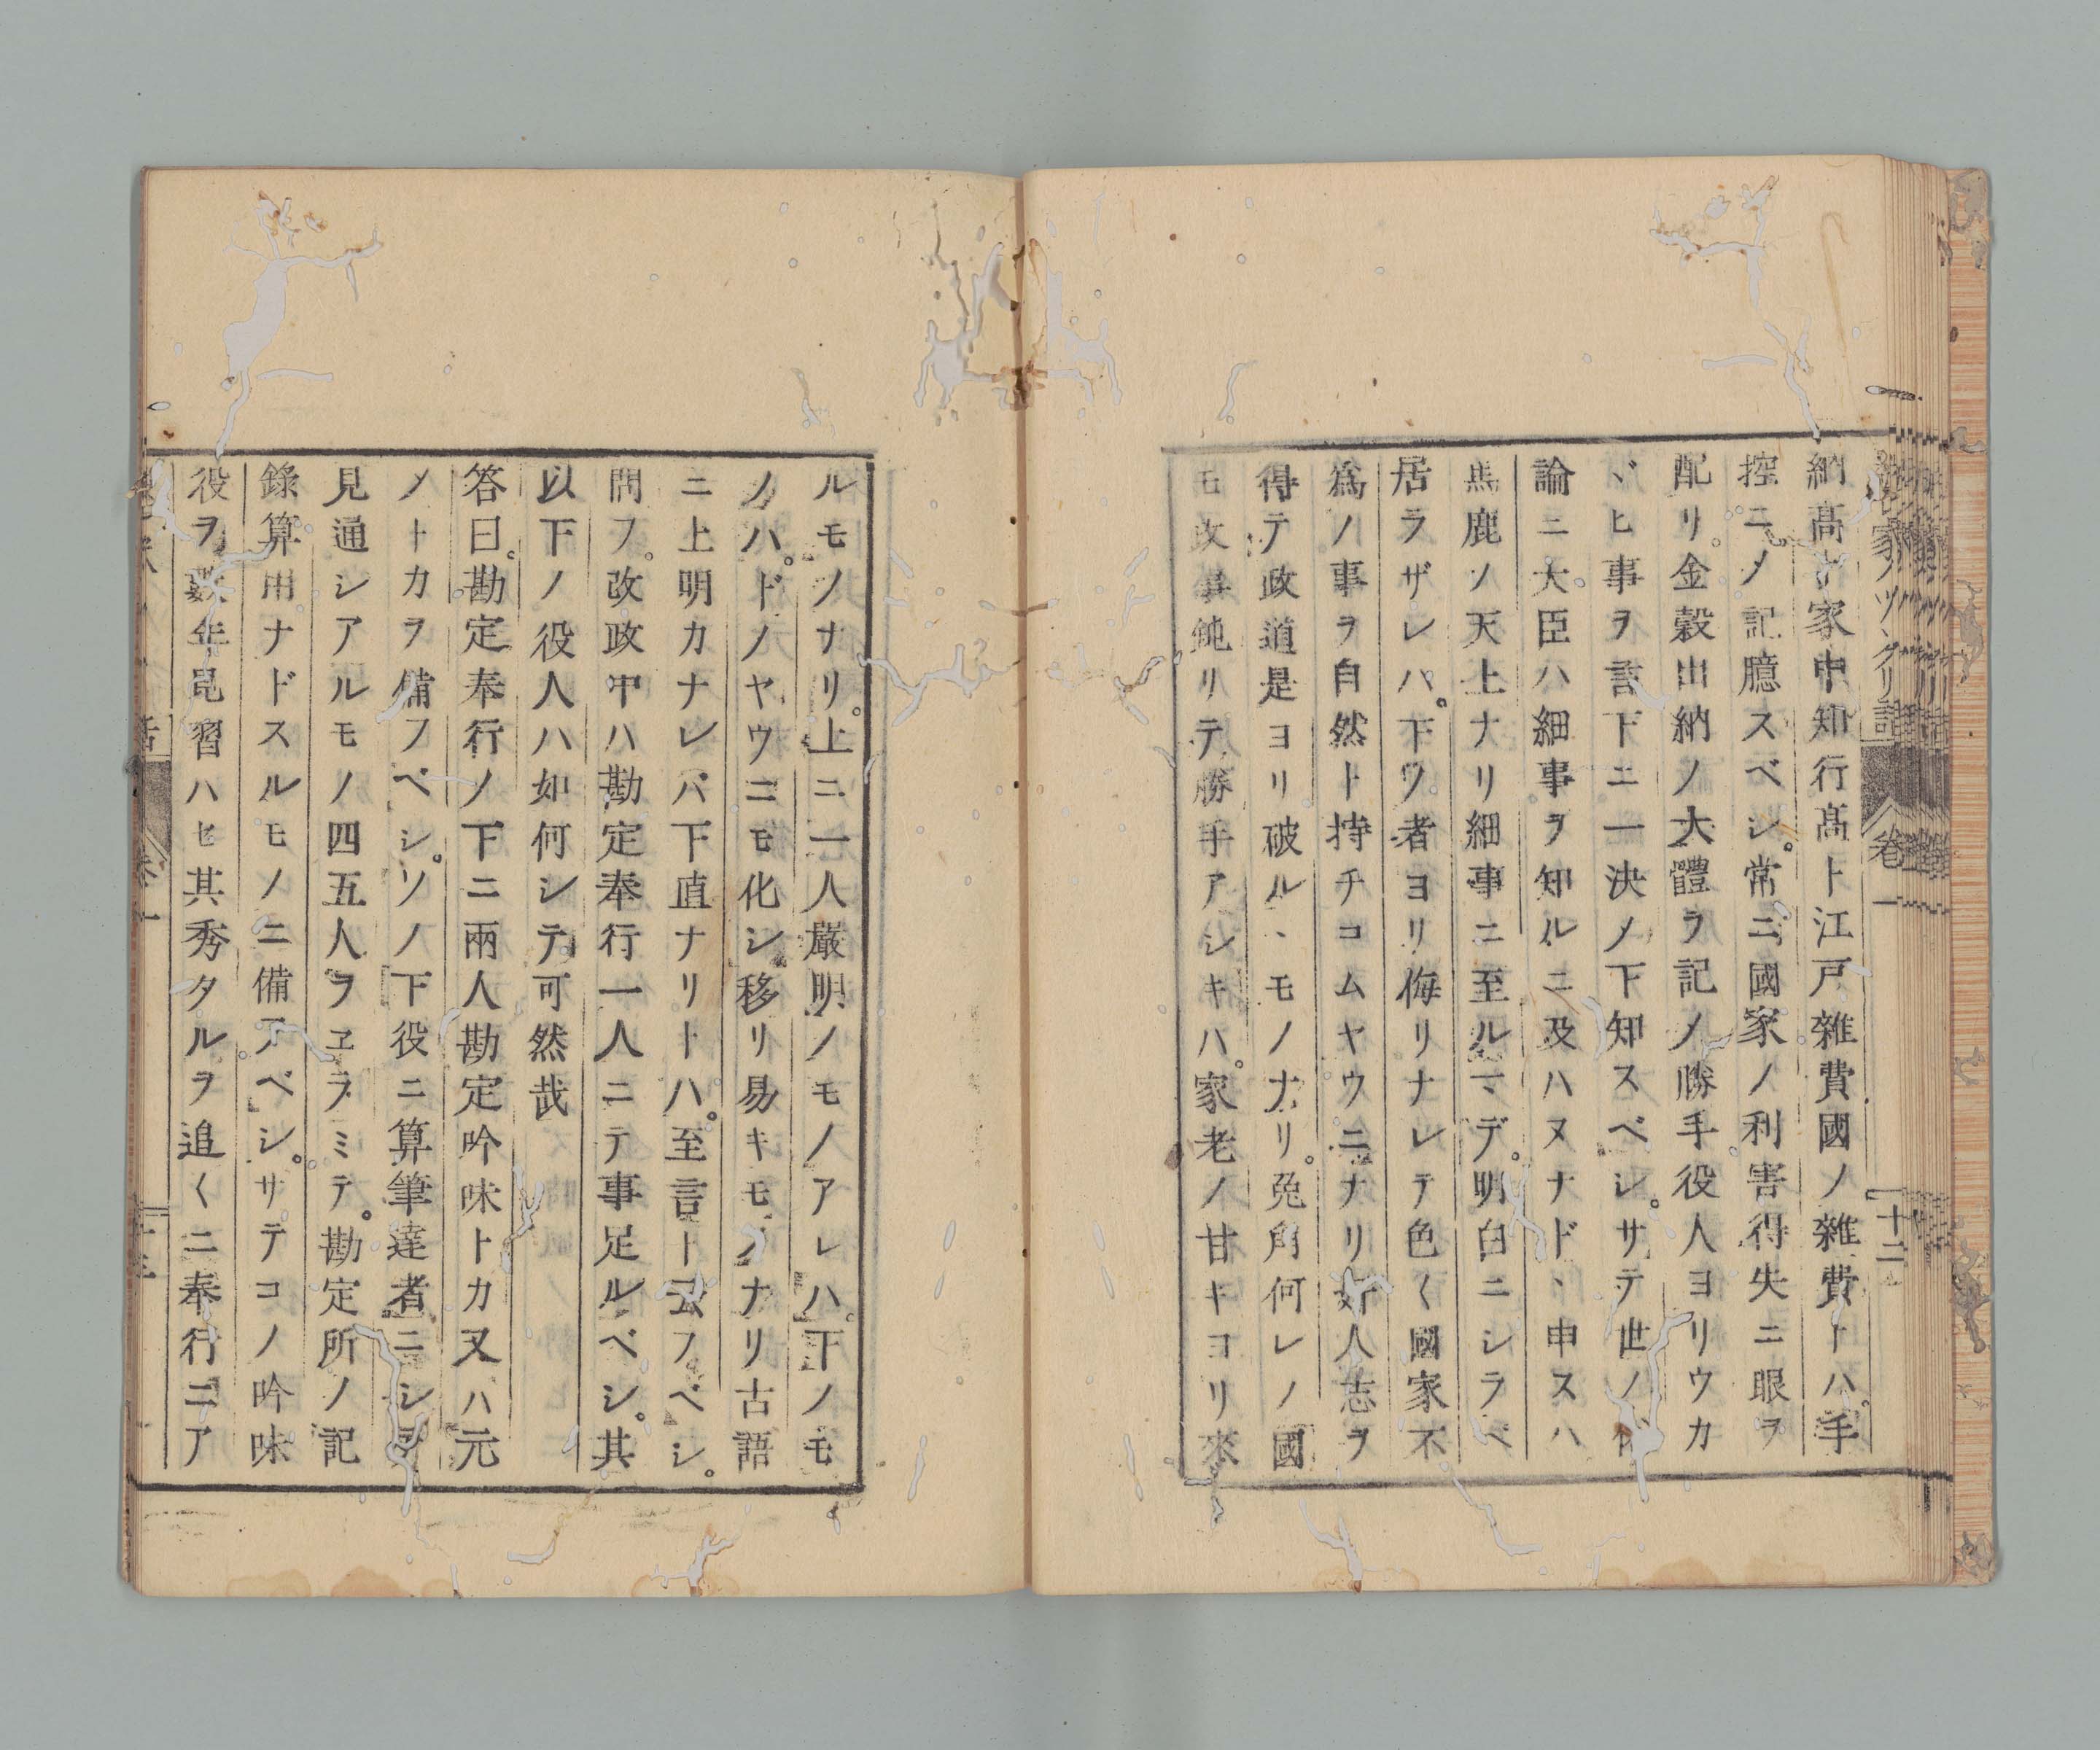 納髙ト家中知行髙ト江戸雑費國ノ雑費トハ。手
控ニメ記臆スベシ。常ニ國家ノ利害得失ニ眼ヲ
配リ。金穀出納ノ大體ヲ記メ勝手役人ヨリウカ
ヾヒ事ヲ言下ニ一決メ下知スベシ。サテ世ノ
論ニ大臣ハ細事ヲ知ルニ及ハヌナド、申スハ
馬鹿ノ天上ナリ細事ニ至ルマデ。明白ニシラベ
居ラザレバ。下ノ者ヨリ侮リナレテ色〱國家不
爲ノ事ヲ自然ト持チコムヤウニナリ奸人志ヲ
得テ政道是ヨリ破ルヽモノナリ。兎角何レノ國
モ政事鈍リテ勝手アシキハ。家老ノ甘キヨリ來
家ノツヽクリ話 卷一 十二
ルモノナリ。上ニ一人嚴明ノモノアレハ。下ノモ
ノハ。ドノヤウニモ化シ移リ易キモノナリ古語
ニ上明カナレバ下直ナリトハ。至言ト云フベシ。
問フ。改政中ハ勘定奉行一人ニテ事足ルベシ。其
以下ノ役人ハ如何シテ可然哉
答曰。勘定奉行ノ下ニ兩人勘定吟味トカ又ハ元
メトカヲ備フベシ。ソノ下役ニ算筆達者ニシテ
見通シアルモノ四五人ヲヱラミテ。勘定所ノ記
錄算用ナドスルモノニ備フベシ。サテコノ吟味
役ヲ數年見習ハセ其秀タルヲ追〱ニ奉行ニア
話 卷一